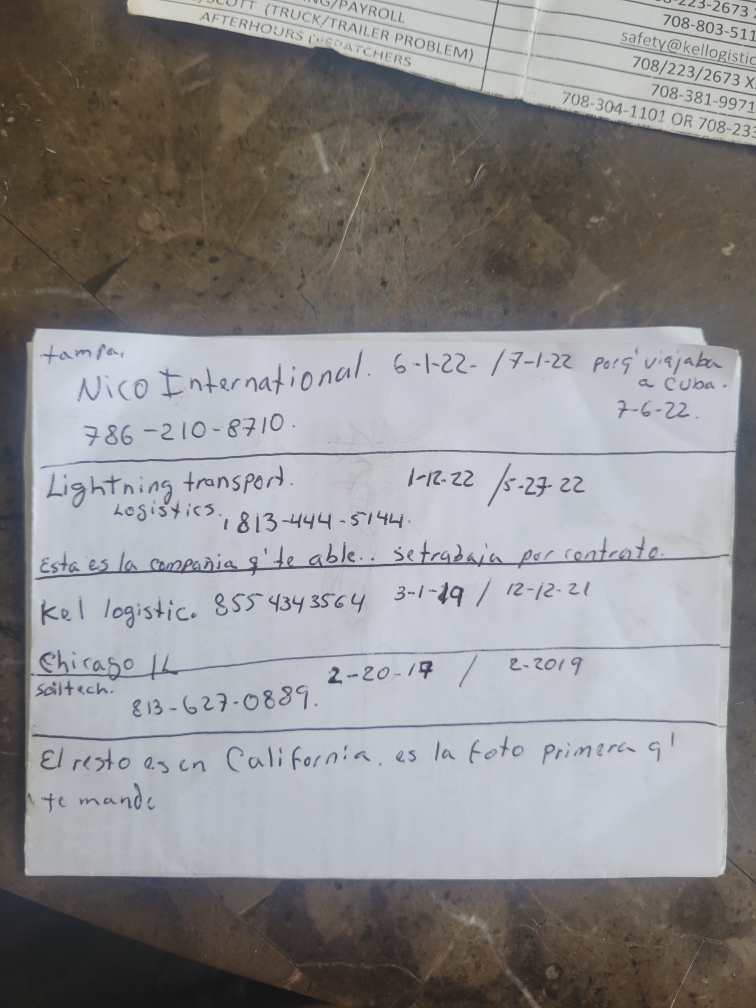 NG/PAYROLL
SCOTT (TRUCK/TRAILER PROBLEM)
AFTERHOURS DISPATCHERS
-223-2673
708-803-511
safety@kellogistic
708/223/2673 X
708-381-9971
708-304-1101 OR 708-233
tampa,
Nico International. 6-1-22- / 7-1-22 porq' viajaba
a Cuba.
786-210-8710. 7-6-22.
Lightning transport. 1-12-22 / 5-27-22
Logistics. 813-444-5144.
Esta es la compañia q' te able.. se trabaja por contrato.
Kel logistic. 855 4343564 3-1-19 / 12-12-21
Chicago IL
soiltech. 2-20-17 / 2-2019
813-627-0889.
El resto es en California. es la foto primera q'
te mande